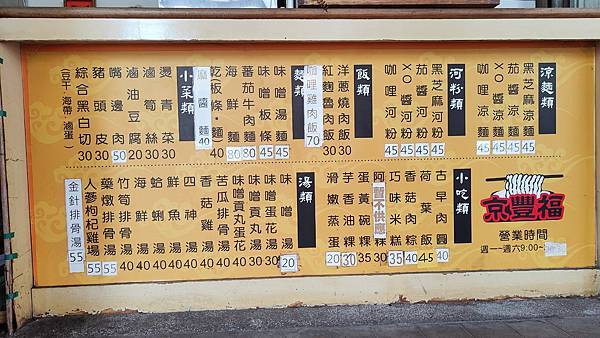 涼麵類
黑芝麻涼麵 45
茄醬涼麵 45
XO醬涼麵 45
咖哩涼麵 45
河粉類
黑芝麻河粉 45
茄醬河粉 45
XO醬河粉 45
咖哩河粉 45
飯類
洋蔥燒肉飯 30
紅麴魯肉飯 30
咖哩雞肉飯 70
麵類
味噌湯麵 45
味噌板條 45
蕃茄牛肉麵 80
海鮮麵 80
乾(板條・麵) 40
麻醬麵 40
小菜類
燙青菜 30
滷筍絲 30
滷油豆腐 20
嘴邊肉 50
豬頭皮 30
綜合黑白切 30
(豆干・海帶・滷蛋)
小吃類
古早肉圓 40
荷葉飯 45
香菇肉粽 40
巧味米糕 35
阿 粿 30
暫不供應
蛋黃碗粿 35
芋香油粿 30
滑嫩蒸蛋 20
湯類
味噌湯 20
味噌蛋花湯
味噌貢丸湯 40
味噌貢丸蛋花 40
苦瓜排骨湯 40
香菇雞湯 40
四神湯 40
鮮魚湯 40
鮮蚵湯 40
蛤蜊湯 40
海鮮湯 40
竹筍排骨湯 40
藥燉排骨湯 55
人蔘枸杞雞湯 55
金針排骨湯 55
京豐福
營業時間
週一~週六9:00~